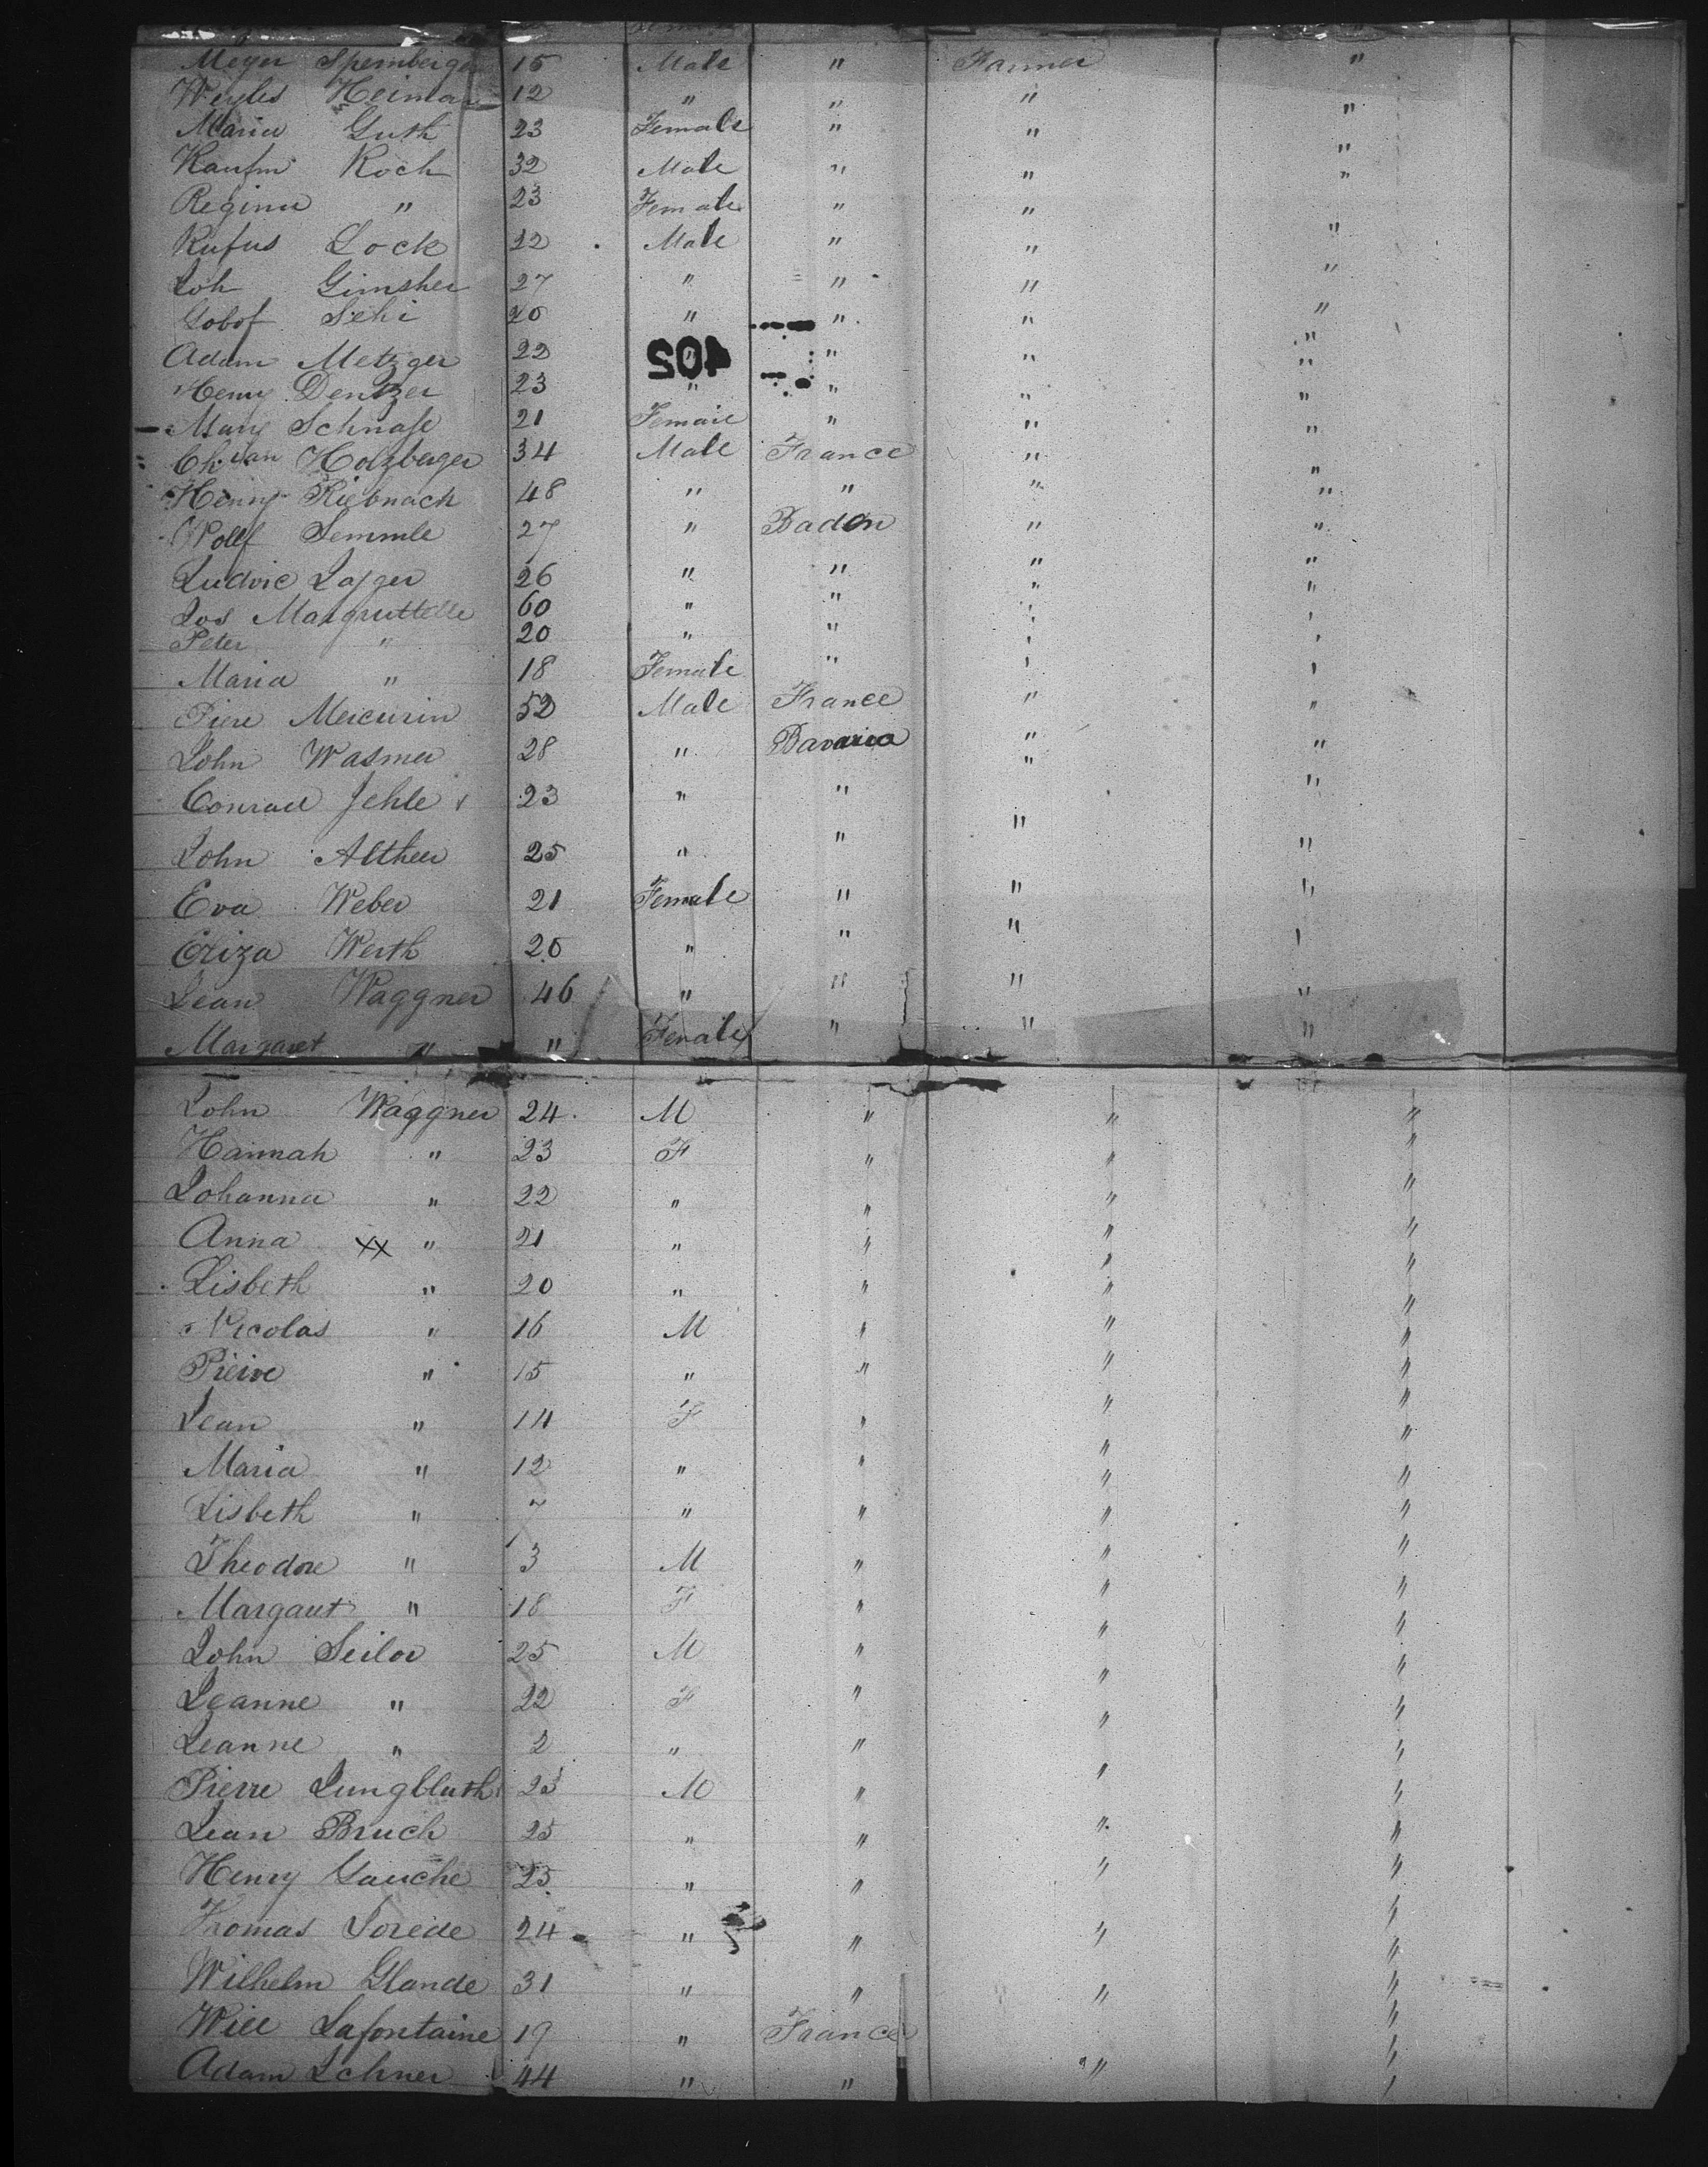 Meyer Spernberger 15 Male " Farmer "
Weyles Heiman 12 " " " "
Maria Guth 23 Female " " "
Kaufm Koch 32 Male " " "
Regina " 23 Female " " "
Rufus Lock 22 Male " " "
Joh Gimsher 27 " " " "
Jobof Sehi 20 " " " "
Adam Metzger 22 " " " "
402
Henry Dentzer 23 " " " "
Mary Schnase 21 Female " " "
Ch. ian Holzberger 34 Male France " "
Henry Riebnach 48 " " " "
Wolf Semmle 27 " Baden " "
Ludvic Jasger 26 " " " "
Jos Margruttelle 60 " " " "
Peter " 20 " " " "
Maria " 18 Female " " "
Piere Meicurin 52 Male France " "
John Wasmer 28 " Bavaria " "
Conrad Jehle 23 " " " "
John Altheer 25 " " " "
Eva Weber 21 Female " " "
Eliza Werth 20 " " " "
Jean Waggner 46 " " " "
Margaret " " Female " " "
John Waggner 24 M " " "
Hannah " 23 F " " "
Johanna " 22 " " " "
Anna xx " 21 " " " "
Lisbeth " 20 " " " "
Nicolas " 16 M " " "
Pierre " 15 " " " "
Jean " 14 F " " "
Maria " 12 " " " "
Lisbeth " 7 " " " "
Theodore " 3 M " " "
Margaret " 18 F " " "
John Seiler 25 M " " "
Jeanne " 22 F " " "
Jeanne " 2 " " " "
Pierre Jungbluth 23 M " " "
Jean Bruch 25 " " " "
Henry Gauche 25 " " " "
Thomas Lorede 24 " " " "
Wilhelm Glande 31 " " " "
Will Lafontaine 19 " France " "
Adam Lehner 44 " " " "